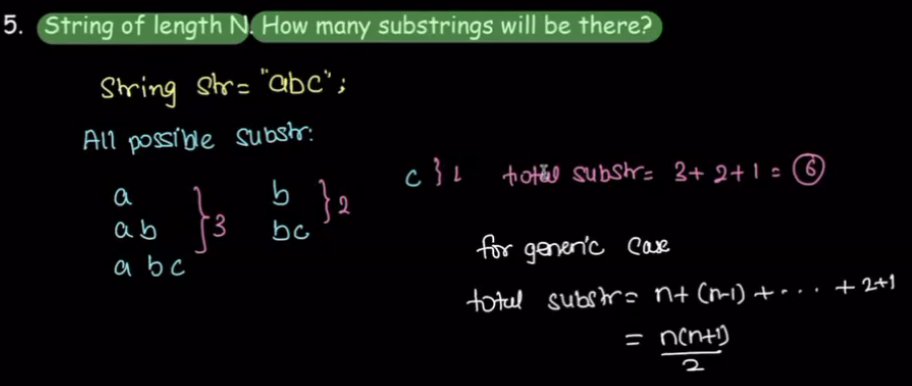 5. String of length N. How many substrings will be there?
String str = "abc";
All possible substr:
a
ab
abc
} 3
b
bc
} 2
c } 1
total substr = 3+ 2+1 = 6
for generic case
total substr = n+ (n-1) + . . . . + 2+1
= n(n+1)
2